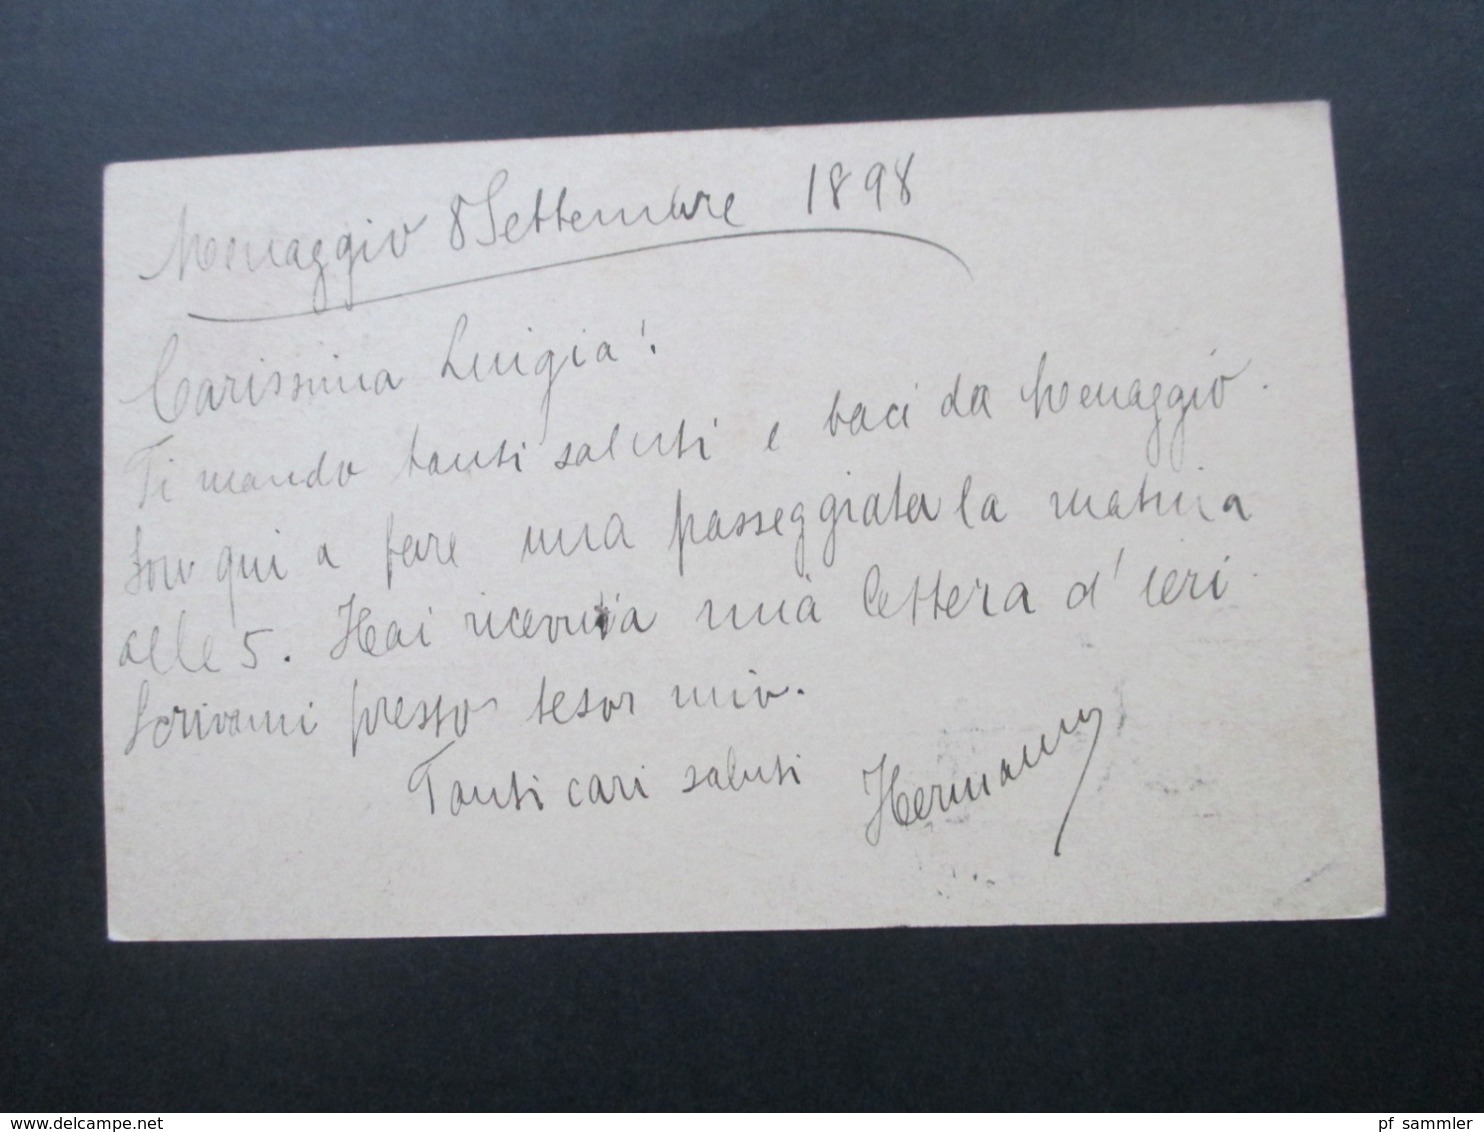 Menaggio 8 Settembre 1898
Carissima Luigia!
Ti mando tanti saluti e baci da Menaggio.
Son qui a fare una passeggiata la matina
alle 5. Hai ricevuta mia lettera d'ieri
Scrivami presto tesor mio.
Tanti cari saluti Hermann
delcampe.net
pf_sammler